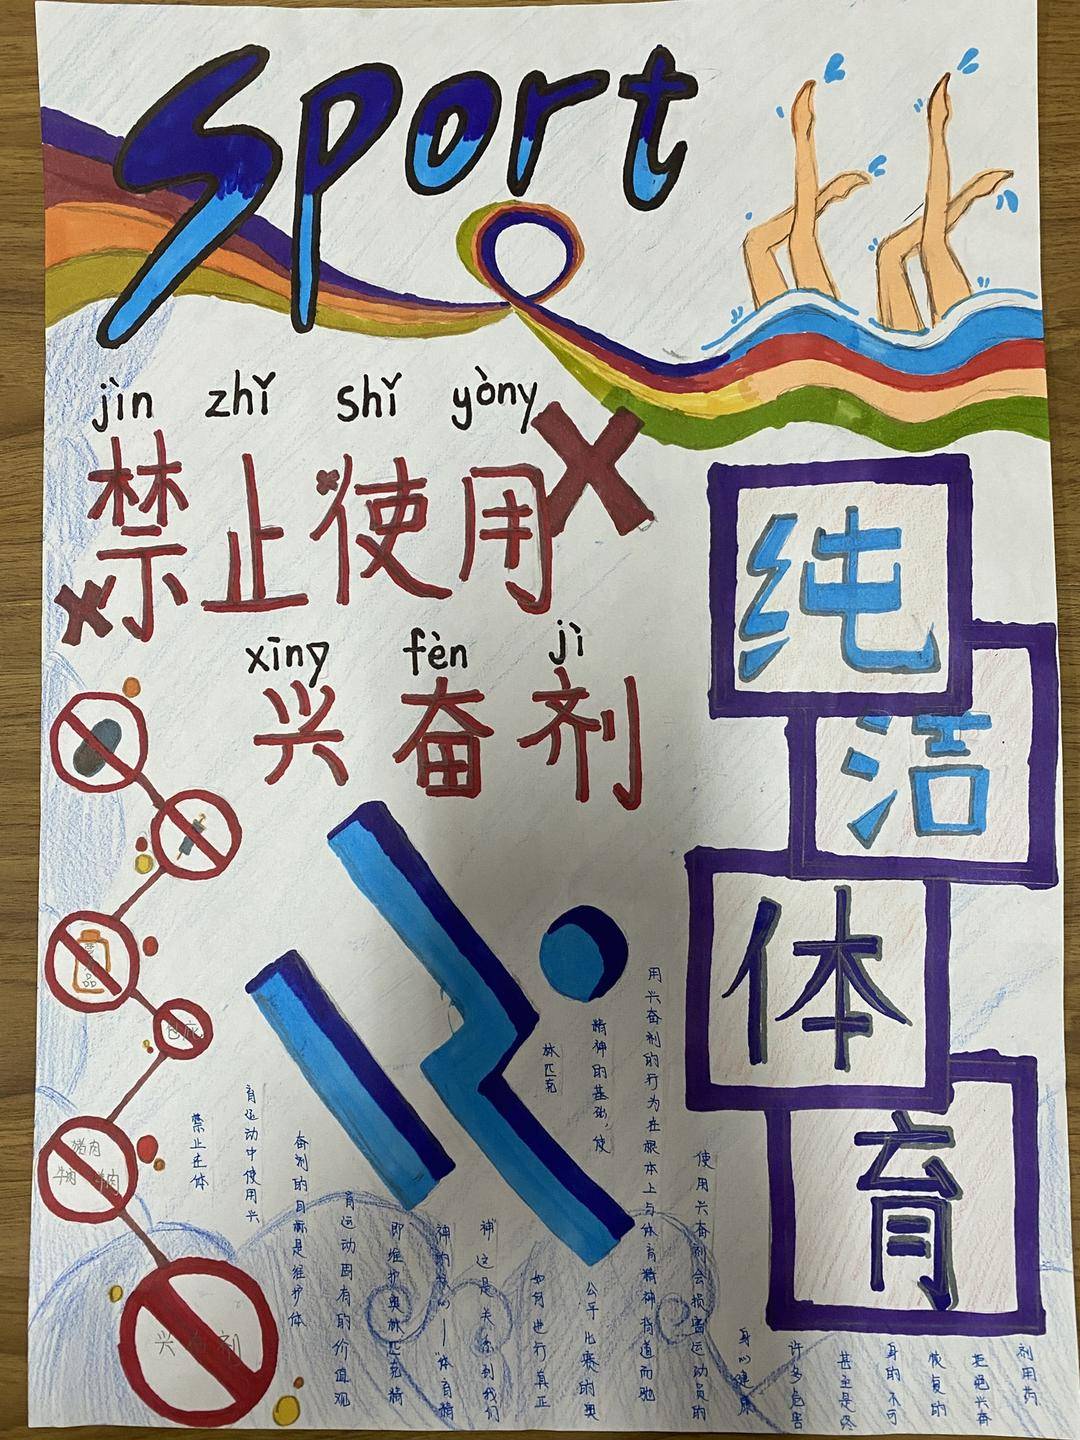 Sport
jìn zhǐ shǐ yòng
禁止使用
xīng fèn jì
兴奋剂
纯
洁
体
育
禁止在体
育运动中使用兴
奋剂的目标是维护体
育运动固有的价值观
即维护奥林匹克精
神的核心—“体育精
神”这是关系到我们
如何进行真正
公平比赛的奥
林匹克
精神的基础,使
用兴奋剂的行为在根本上与体育精神背道而驰
使用兴奋剂会损害运动员的
身心健康
许多危害
甚至是终
身的不可
恢复的
拒绝兴奋
剂用药
禁
品
猪肉
牛肉 羊肉
兴奋剂